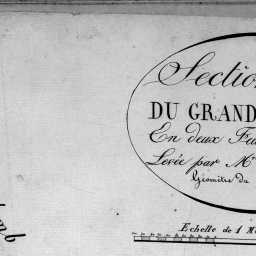 Section
DU GRAND
En deux Feu
Levée par Mr
Géomètre du
Echelle de 1 M